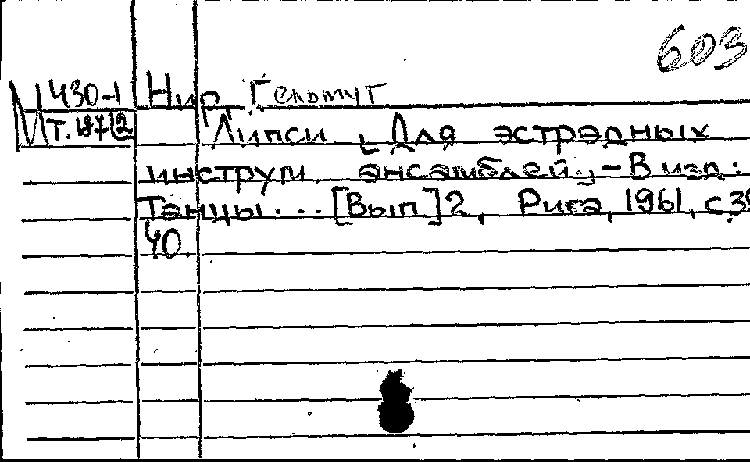 603
М 430-1 Нир, Гельмут
Т. 187/2 Липси. Для эстрадных
инструм. ансамблей. - В изд.:
Танцы... [Вып]2, Рига, 1961, с.39
40.